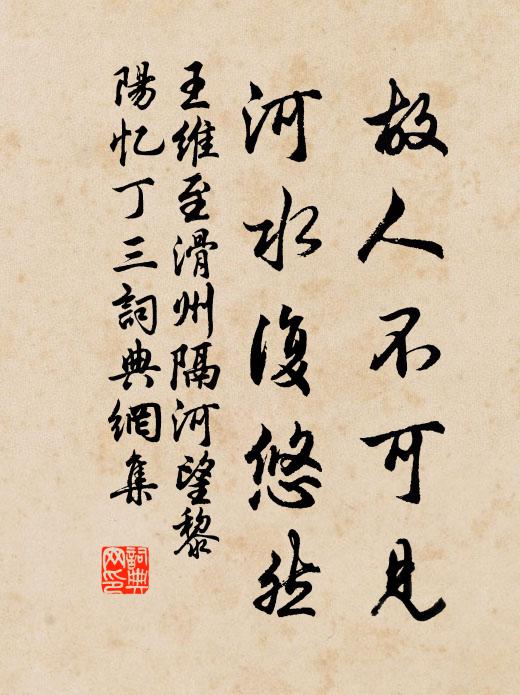 故人不可見
河水復悠然
王維至滑州隔河望黎
陽忆丁三詞典網集
詞典网印